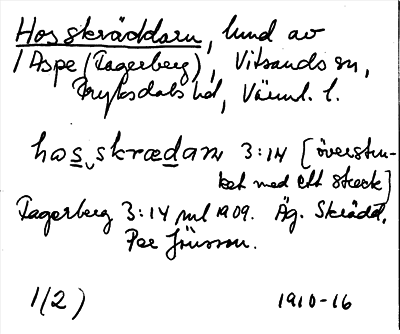 Hos skräddarn, lund av
1 Aspe (Tagerberg), Vitsands sn,
Fryksdals hd, Värml. l.
hos skrædan 3:14 [överstru-
ket med ett streck]
Tagerberg 3:14 jul 1909. Äg. Skrädd.
Per Jönsson.
1(2)
1910-16